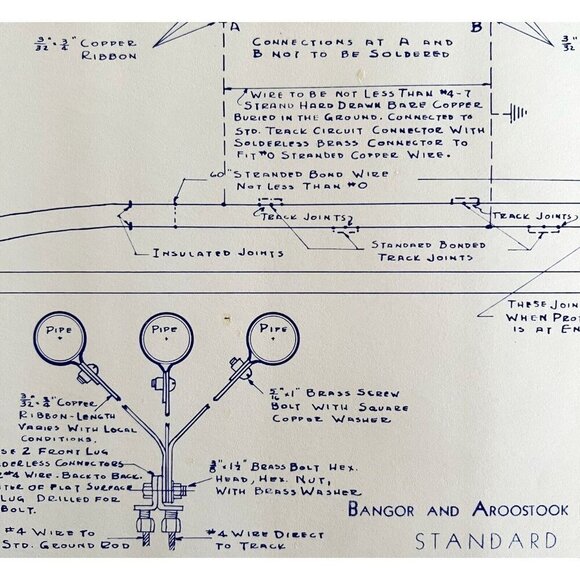 A
B
3/32" x 3/4" COPPER
RIBBON
CONNECTIONS AT A AND
B NOT TO BE SOLDERED
3/32"
WIRE TO BE NOT LESS THAN #4-7
STRAND HARD DRAWN BARE COPPER
BURIED IN THE GROUND. CONNECTED TO
STD. TRACK CIRCUIT CONNECTOR WITH
SOLDERLESS BRASS CONNECTOR TO
FIT #0 STRANDED COPPER WIRE.
60" STRANDED BOND WIRE
NOT LESS THAN #0
TRACK JOINTS
TRACK JOINTS
INSULATED JOINTS
STANDARD BONDED
TRACK JOINTS
THESE JOIN
WHEN PROT
IS AT EN
PIPE
PIPE
PIPE
3/32" x 3/4" COPPER
RIBBON-LENGTH
VARIES WITH LOCAL
CONDITIONS.
5/16" x 1" BRASS SCREW
BOLT WITH SQUARE
COPPER WASHER
SE 2 FRONT LUG
LDERLESS CONNECTORS
#4 WIRE. BACK TO BACK.
TER OF FLAT SURFACE
LUG DRILLED FOR
BOLT.
3/8" x 1 1/2" BRASS BOLT HEX.
HEAD, HEX. NUT,
WITH BRASS WASHER
#4 WIRE TO
STD. GROUND ROD
#4 WIRE DIRECT
TO TRACK
BANGOR AND AROOSTOOK
STANDARD